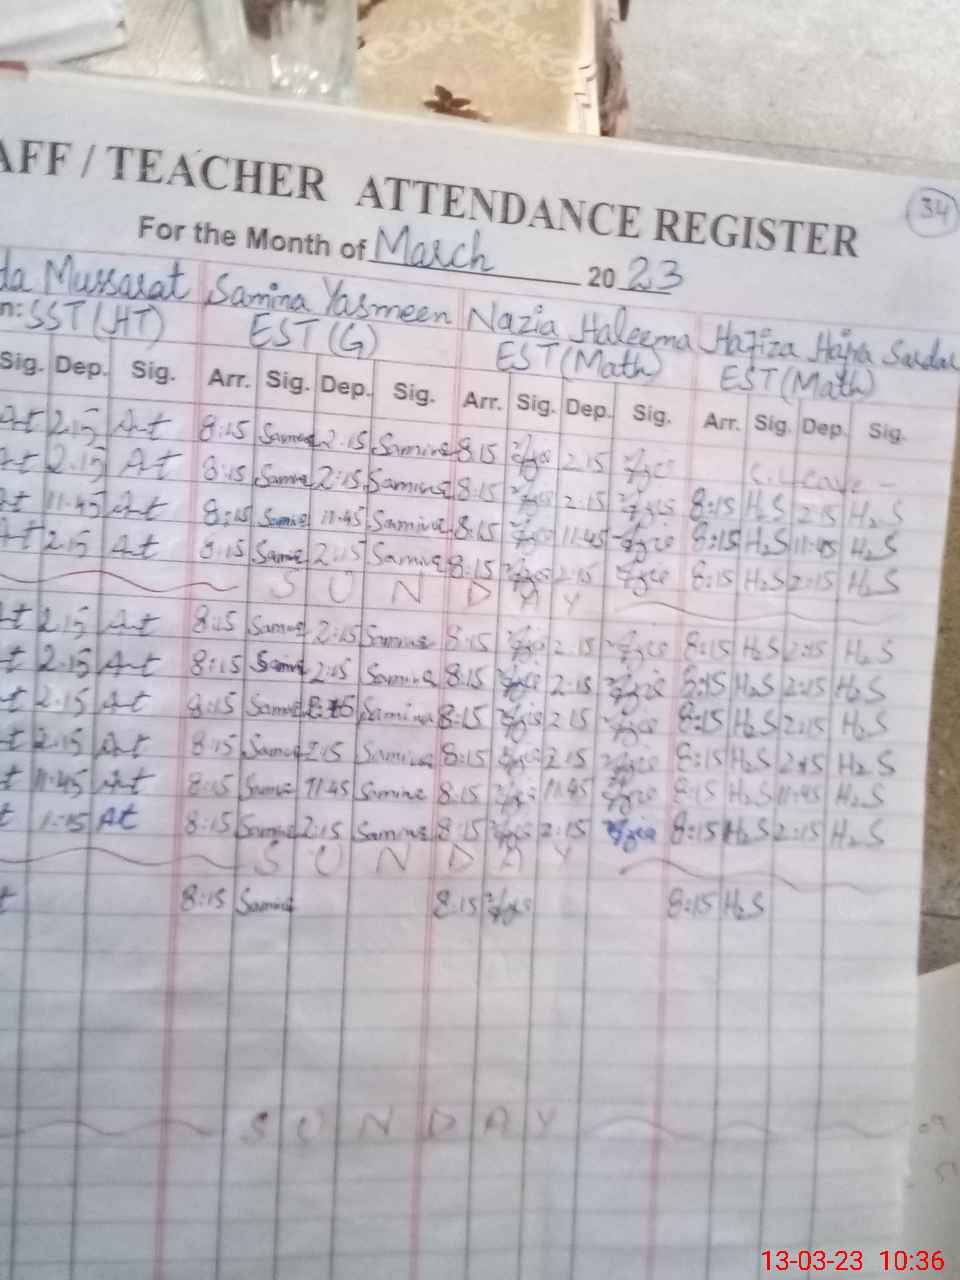 AFF / TEACHER ATTENDANCE REGISTER
34
For the Month of March 2023
da Mussarat Samina Yasmeen Nazia Haleema Hafiza Hajra Sardar
n: SST (HT) EST (G) EST (Math) EST (Math)
Sig. Dep. Sig. Arr. Sig. Dep. Sig. Arr. Sig. Dep. Sig. Arr. Sig. Dep. Sig.
At 2.15 At 8:15 Samina 2:15 Samina 8:15 2:15 Leave
At 2.15 At 8:15 Samina 2:15 Samina 8:15 2:15 8:15 H.S 2:15 H.S
At 11.45 At 8:15 Samina 11:45 Samina 8:15 11:45 8:15 H.S 11:45 H.S
At 2.15 At 8:15 Samina 2:15 Samina 8:15 2:15 8:15 H.S 2:15 H.S
SUNDAY
t 2.15 At 8:15 Samina 2:15 Samina 8:15 2:15 8:15 H.S 2:15 H.S
t 2.15 At 8:15 Samina 2:15 Samina 8:15 2:15 8:15 H.S 2:15 H.S
t 2.15 At 8:15 Samina Samina 8:15 2:15 8:15 H.S 2:15 H.S
t 2.15 At 8:15 Samina 2:15 Samina 8:15 2:15 8:15 H.S 2:15 H.S
t 11.45 At 8:15 Samina 11:45 Samina 8:15 11:45 8:15 H.S 11:45 H.S
t At 8:15 Samina 2:15 Samina 8:15 2:15 8:15 H.S 2:15 H.S
SUNDAY
t 8:15 Samina 8:15 8:15 H.S
SUNDAY
13-03-23 10:36